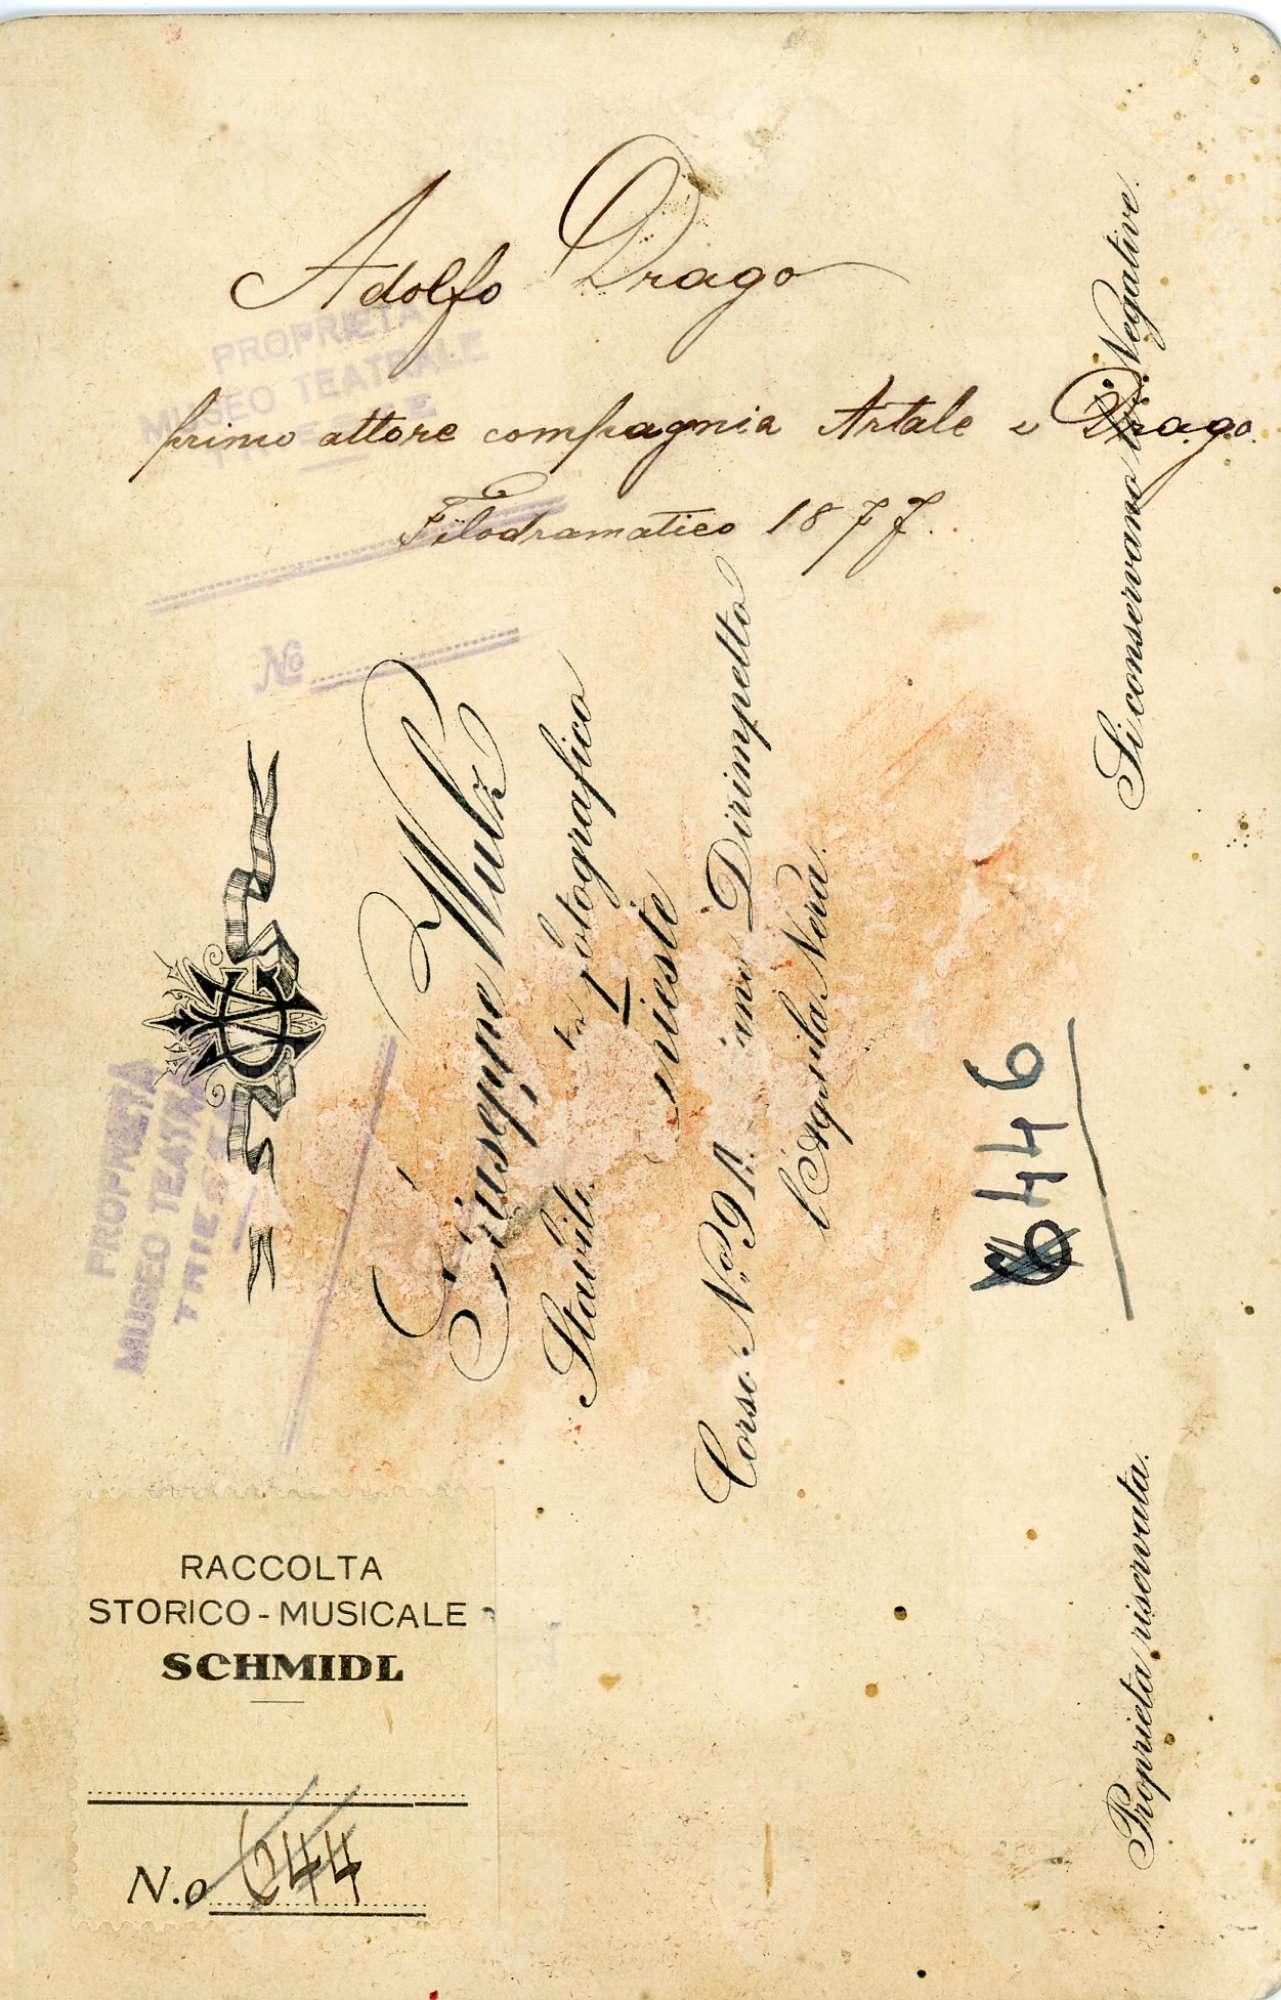 Adolfo Drago
primo attore compagnia Artale e Drago.
Filodramatico 1877.
PROPRIETÀ
MUSEO TEATRALE
TRIESTE
No
Giuseppe Wulz
Fotografico
Trieste
Corso No. 9 Dirimpetto
l'Aquila Nera.
Si conservano le Negative.
Proprietà riservata.
PROPRIETÀ
MUSEO TEATRALE
TRIESTE
6446
RACCOLTA
STORICO-MUSICALE
SCHMIDL
N.o 644